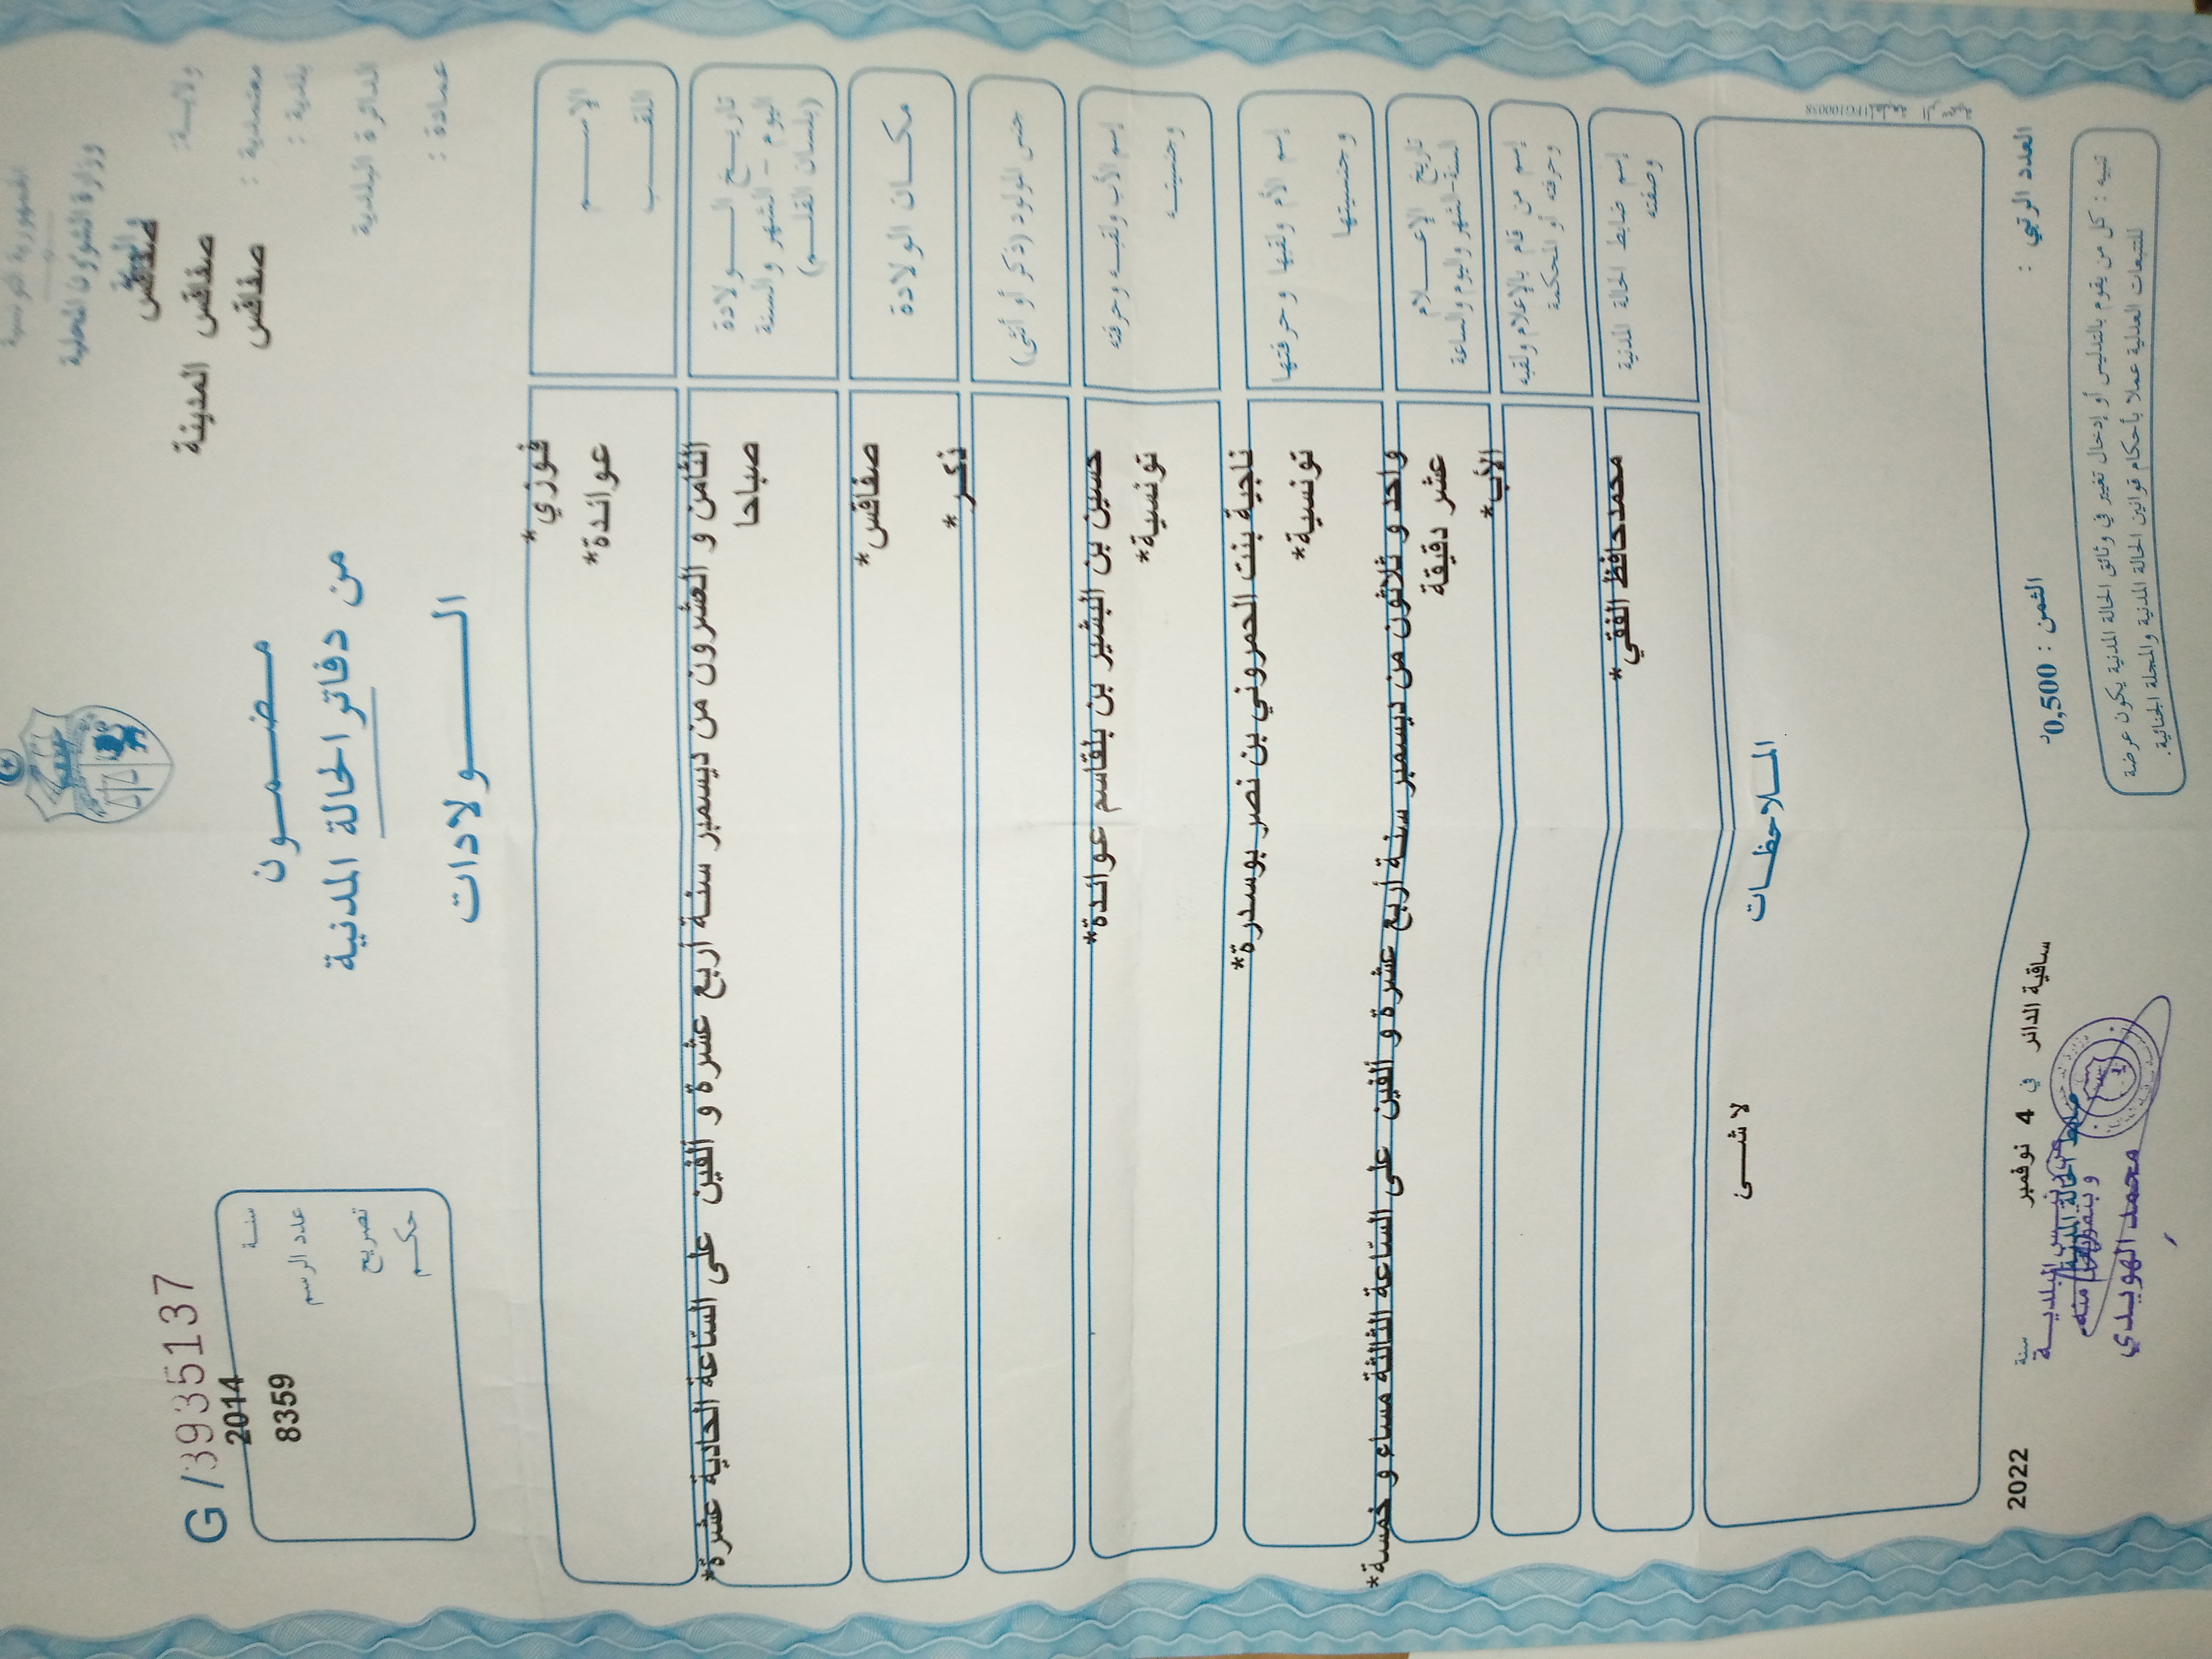 الجمهورية التونسية
وزارة الشؤون المحلية
والبيئة
ولاية: صفاقس
معتمدية: صفاقس المدينة
بلدية: صفاقس
الدائرة البلدية
عمادة:
G /3935137
سنة 2014
عدد الرسم 8359
تصريح
حكم
مضمون
من دفاتر الحالة المدنية
الولادات
الإسم فوزي*
اللقب عوائدة*
تاريخ الولادة
اليوم - الشهر والسنة
(بلسان القلم)
الثامن و العشرون من ديسمبر سنة أربع عشرة و ألفين على الساعة الحادية عشرة*
صباحا
مكان الولادة صفاقس*
جنس المولود (ذكر أو أنثى) ذكر*
إسم الأب ولقبه وحرفته حسين بن البشير بن بلقاسم عوائدة*
وجنسيته تونسية*
إسم الأم ولقبها وحرفتها ناجية بنت الحمروني بن نصر بوسدرة*
وجنسيتها تونسية*
تاريخ الإعلام
السنة-الشهر واليوم والساعة
واحد و ثلاثون من ديسمبر سنة أربع عشرة و ألفين على الساعة الثالثة مساء و خمسة*
عشر دقيقة
إسم من قام بالإعلام ولقبه الأب*
وحرفته أو المحكمة
إسم ضابط الحالة المدنية محمدحافظ الفقي*
وصفته
الملاحظات
لا شئ
العدد الرتبي :
الثمن : 0,500د
ساقية الدائر في 4 نوفمبر سنة 2022
ضابط الحالة المدنية
عن رئيس البلدية
و بتفويض منه
محمد الهويدي
تنبيه : كل من يقوم بالتدليس أو إدخال تغيير في وثائق الحالة المدنية يكون عرضة
للتتبعات العدلية عملا بأحكام قوانين الحالة المدنية والمجلة الجنائية.